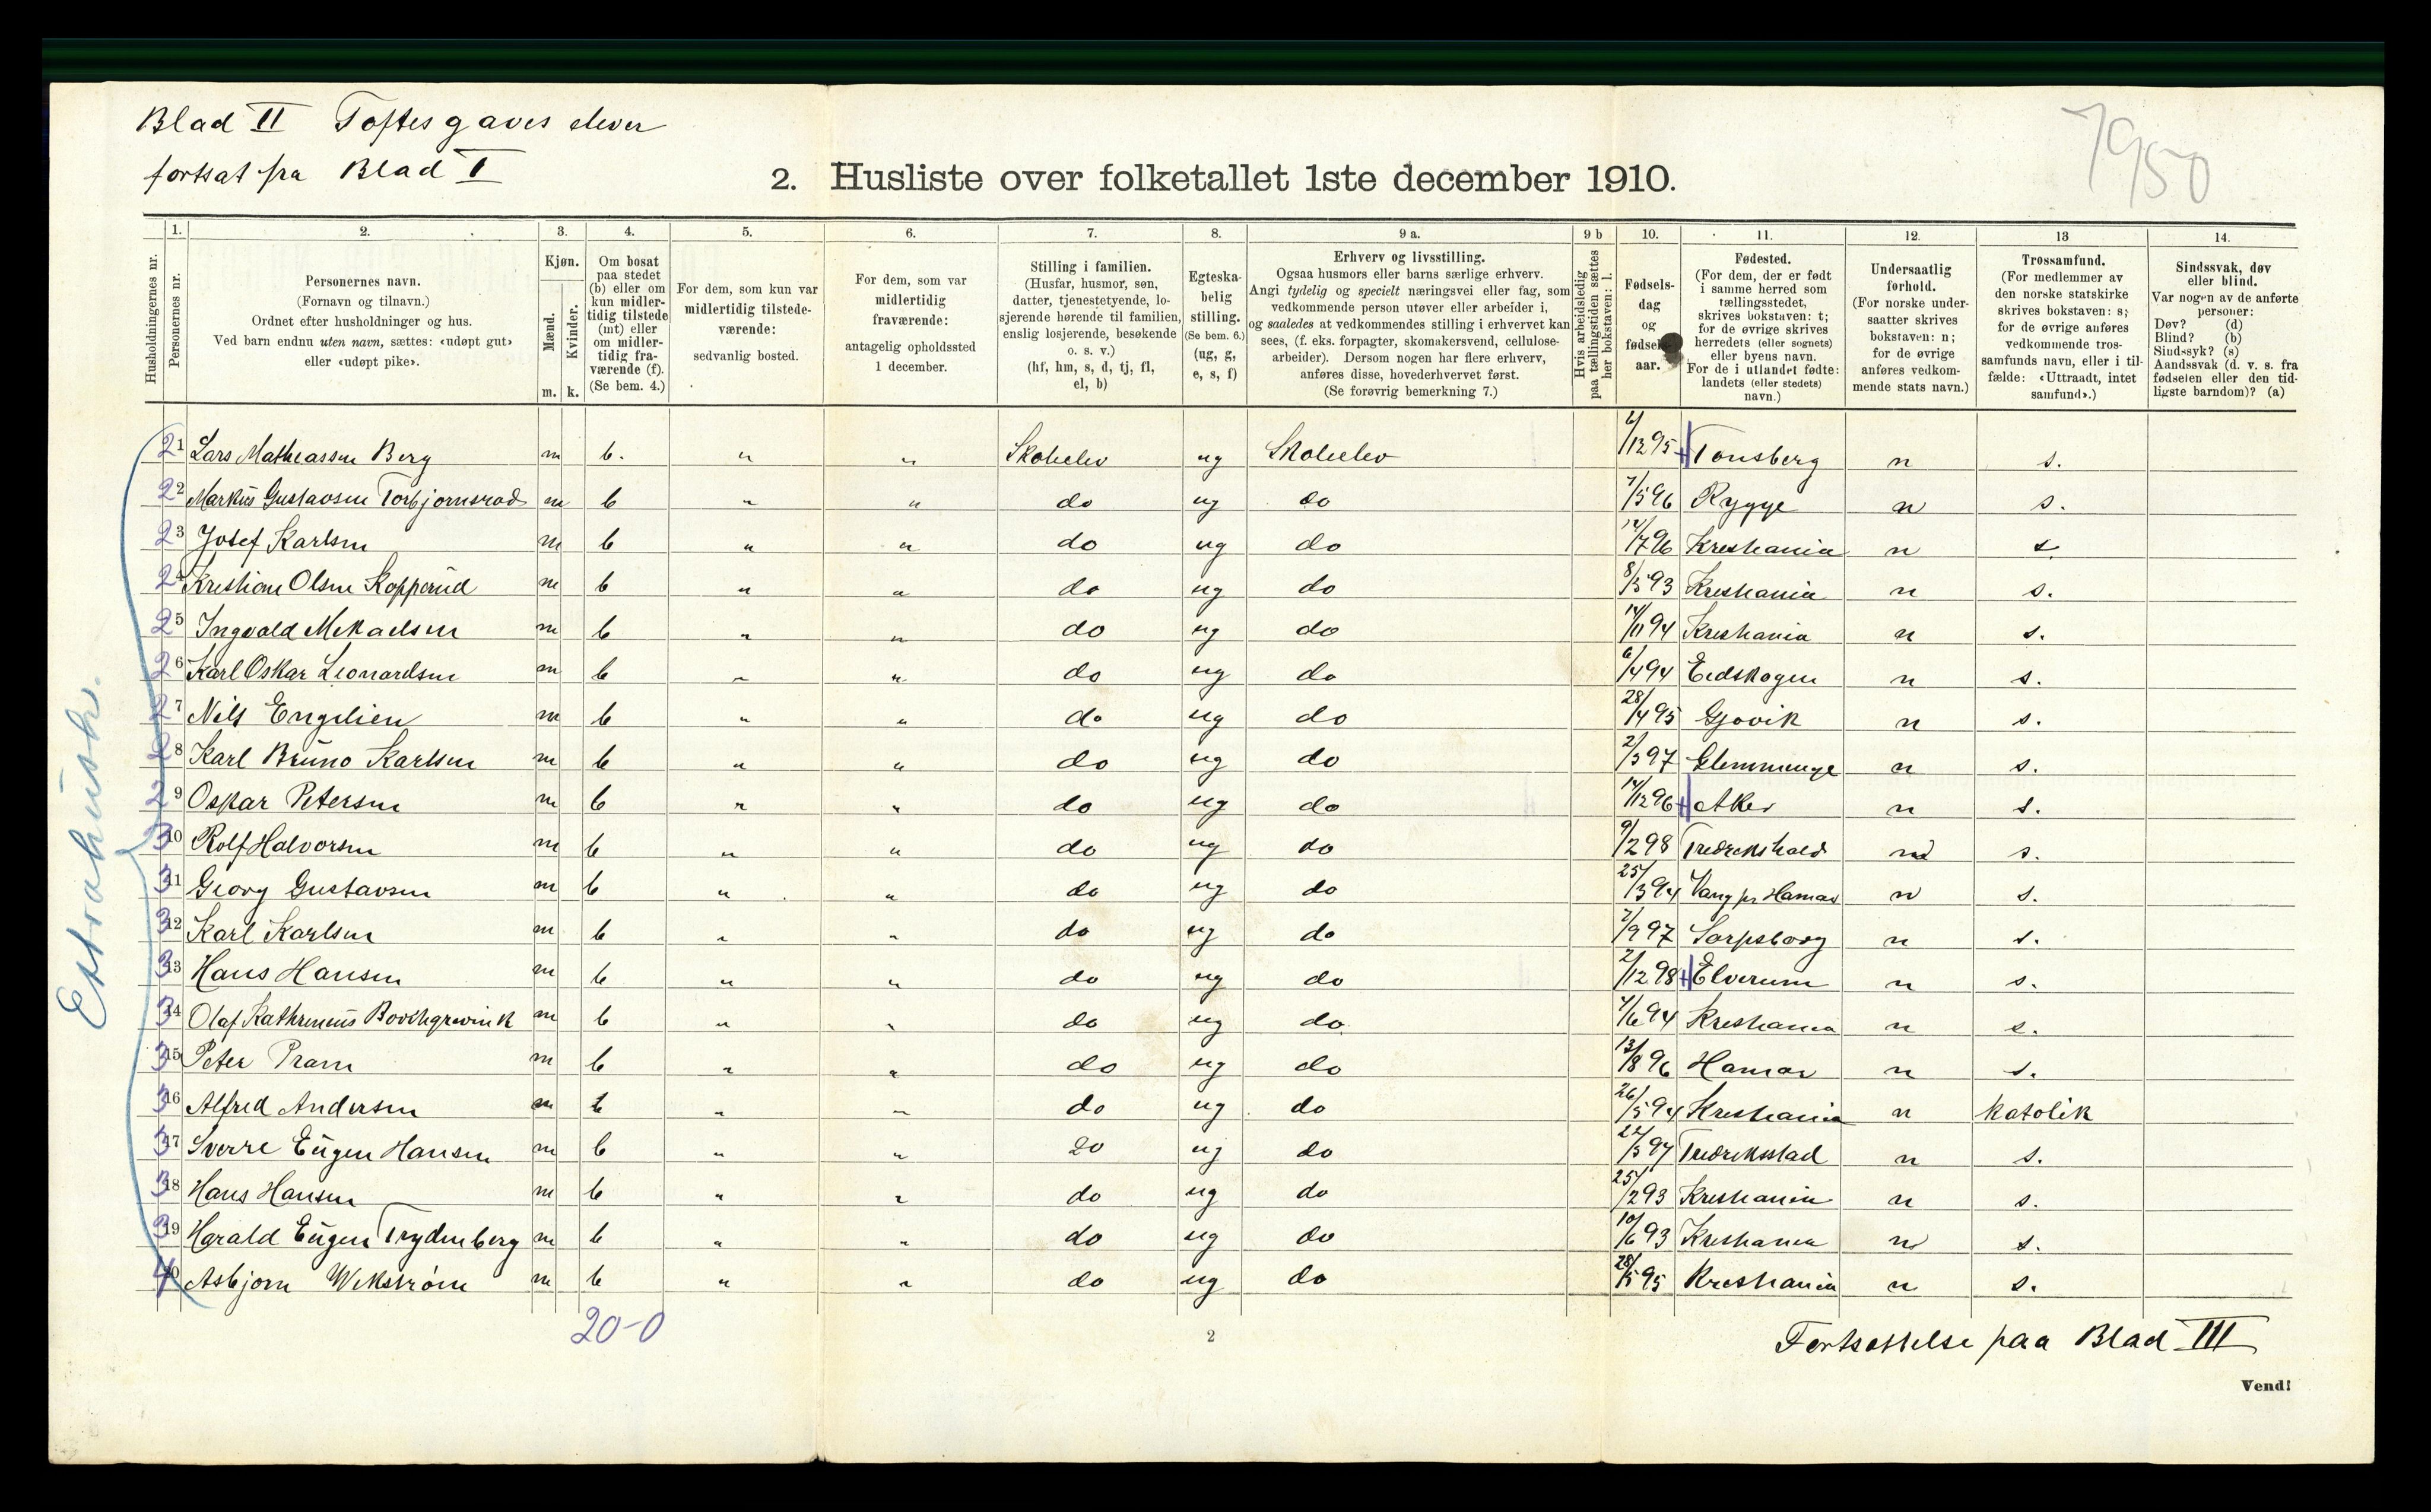 Blad II Toftesgaves elever
fortsat fra Blad I
7950
2. Husliste over folketallet 1ste december 1910.
Husholdningernes nr.
1. Personernes nr.
2. Personernes navn. (Fornavn og tilnavn.) Ordnet efter husholdninger og hus. Ved barn endnu uten navn, sættes: «udøpt gut» eller «udøpt pike».
3. Kjøn. Mænd. m. Kvinder. k.
4. Om bosat paa stedet (b) eller om kun midlertidig tilstede (mt) eller om midlertidig fraværende (f). (Se bem. 4.)
5. For dem, som kun var midlertidig tilstedeværende: sedvanlig bosted.
6. For dem, som var midlertidig fraværende: antagelig opholdssted 1 december.
7. Stilling i familien. (Husfar, husmor, søn, datter, tjenestetyende, losjerende hørende til familien, enslig losjerende, besøkende o. s. v.) (hf, hm, s, d, tj, fl, el, b)
8. Egteskabelig stilling. (Se bem. 6.) (ug, g, e, s, f)
9 a. Erhverv og livsstilling. Ogsaa husmors eller barns særlige erhverv. Angi tydelig og specielt næringsvei eller fag, som vedkommende person utøver eller arbeider i, og saaledes at vedkommendes stilling i erhvervet kan sees, (f. eks. forpagter, skomakersvend, cellulosearbeider). Dersom nogen har flere erhverv, anføres disse, hovederhvervet først. (Se forøvrig bemerkning 7.)
9 b Hvis arbeidsledig paa tællingstiden sættes her bokstaven: l.
10. Fødselsdag og fødselsaar.
11. Fødested. (For dem, der er født i samme herred som tællingsstedet, skrives bokstaven: t; for de øvrige skrives herredets (eller sognets) eller byens navn. For de i utlandet fødte: landets (eller stedets) navn.)
12. Undersaatlig forhold. (For norske undersaatter skrives bokstaven: n; for de øvrige anføres vedkommende stats navn.)
13 Trossamfund. (For medlemmer av den norske statskirke skrives bokstaven: s; for de øvrige anføres vedkommende trossamfunds navn, eller i tilfælde: «Uttraadt, intet samfund».)
14. Sindssvak, døv eller blind. Var nogen av de anførte personer: Døv? (d) Blind? (b) Sindssyk? (s) Aandssvak (d. v. s. fra fødselen eller den tidligste barndom)? (a)
Extrahush.
21 Lars Matheassen Berg m b. " " Skoleelev ug Skoleelev 6/12 95 Tønsberg n s.
22 Markus Gustavsen Torbjørnsrød m b " " do ug do 7/5 96 Rygge n s.
23 Josef Karlsen m b " " do ug do 14/7 96 Kristiania n s.
24 Kristian Olsen Kopperud m b " " do ug do 8/5 93 Kristiania n s.
25 Ingvald Mikaelsen m b " " do ug do 14/11 94 Kristiania n s.
26 Karl Oskar Leonardsen m b " " do ug do 6/4 94 Eidskogen n s.
27 Nils Engelien m b " " do ug do 28/4 95 Gjøvik n s.
28 Karl Bruno Karlsen m b " " do ug do 2/3 97 Glemminge n s.
29 Oskar Petersen m b " " do ug do 14/12 96 Aker n s.
30 Rolf Halvorsen m b " " do ug do 9/2 98 Fredrikshald n s.
31 Georg Gustavsen m b " " do ug do 25/3 94 Vang pr Hamar n s.
32 Karl Karlsen m b " " do ug do 7/9 97 Sarpsborg n s.
33 Hans Hansen m b " " do ug do 2/12 98 Elverum n s.
34 Olaf Kathrinius Borchgrevink m b " " do ug do 4/6 94 Kristiania n s.
35 Peter Pram m b " " do ug do 13/8 96 Hamar n s.
36 Alfred Andersen m b " " do ug do 26/5 94 Kristiania n Katolik
37 Sverre Eugen Hansen m b " " do ug do 22/3 97 Fredrikstad n s.
38 Hans Hansen m b " " do ug do 25/2 93 Kristiania n s.
39 Harald Eugen Frydenberg m b " " do ug do 10/6 93 Kristiania n s.
40 Asbjørn Wikstrøm m b " " do ug do 28/5 95 Kristiania n s.
20-0
2
Fortsættelse paa Blad III
Vend!